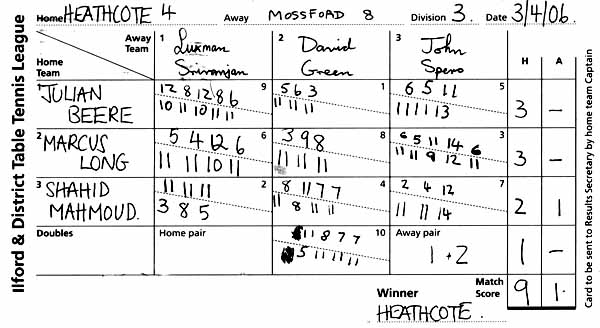 Ilford & District Table Tennis League
Home HEATHCOTE 4 Away MOSSFORD 8 Division 3. Date 3/4/06.
Away Team
Home Team
1 Luxman Sriranjan
2 David Green
3 John Spero
H A
1 JULIAN BEERE
12 8 12 8 6 9
10 11 10 11 11
5 6 3 1
11 11 11
6 5 11 5
11 11 13
3 –
2 MARCUS LONG
5 4 12 6 6
11 11 10 11
3 9 8 8
11 11 11
6 5 11 14 6 3
11 11 9 12 11
3 –
3 SHAHID MAHMOUD.
11 11 11 2
3 8 5
8 11 7 7 4
11 8 11 11
2 4 12 7
11 11 14
2 1
Doubles
Home pair
11 8 7 7 10
5 11 11 11
Away pair
1 + 2
1 –
Winner
HEATHCOTE.
Match Score
9 1.
Card to be sent to Results Secretary by home team Captain